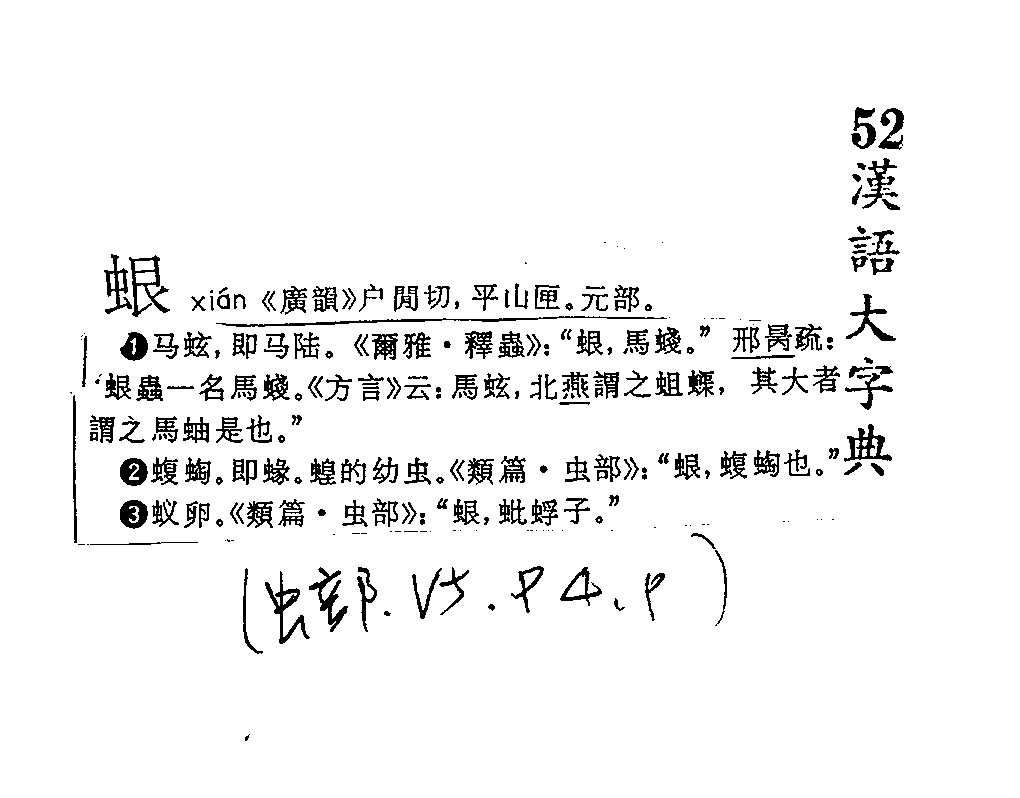 52
漢語大字典
蛝 xián《廣韻》户閒切，平山匣。元部。
❶马蚿，即马陆。《爾雅·釋蟲》：“蛝，馬蝬。” 邢昺疏：
“蛝蟲一名馬蝬。《方言》云：馬蚿，北燕謂之蛆蟝，其大者
謂之馬蚰是也。”
❷蝮蜪。即蝝。蝗的幼虫。《類篇·虫部》：“蛝，蝮蜪也。”
❸蚁卵。《類篇·虫部》：“蛝，蚍蜉子。”
(虫部.